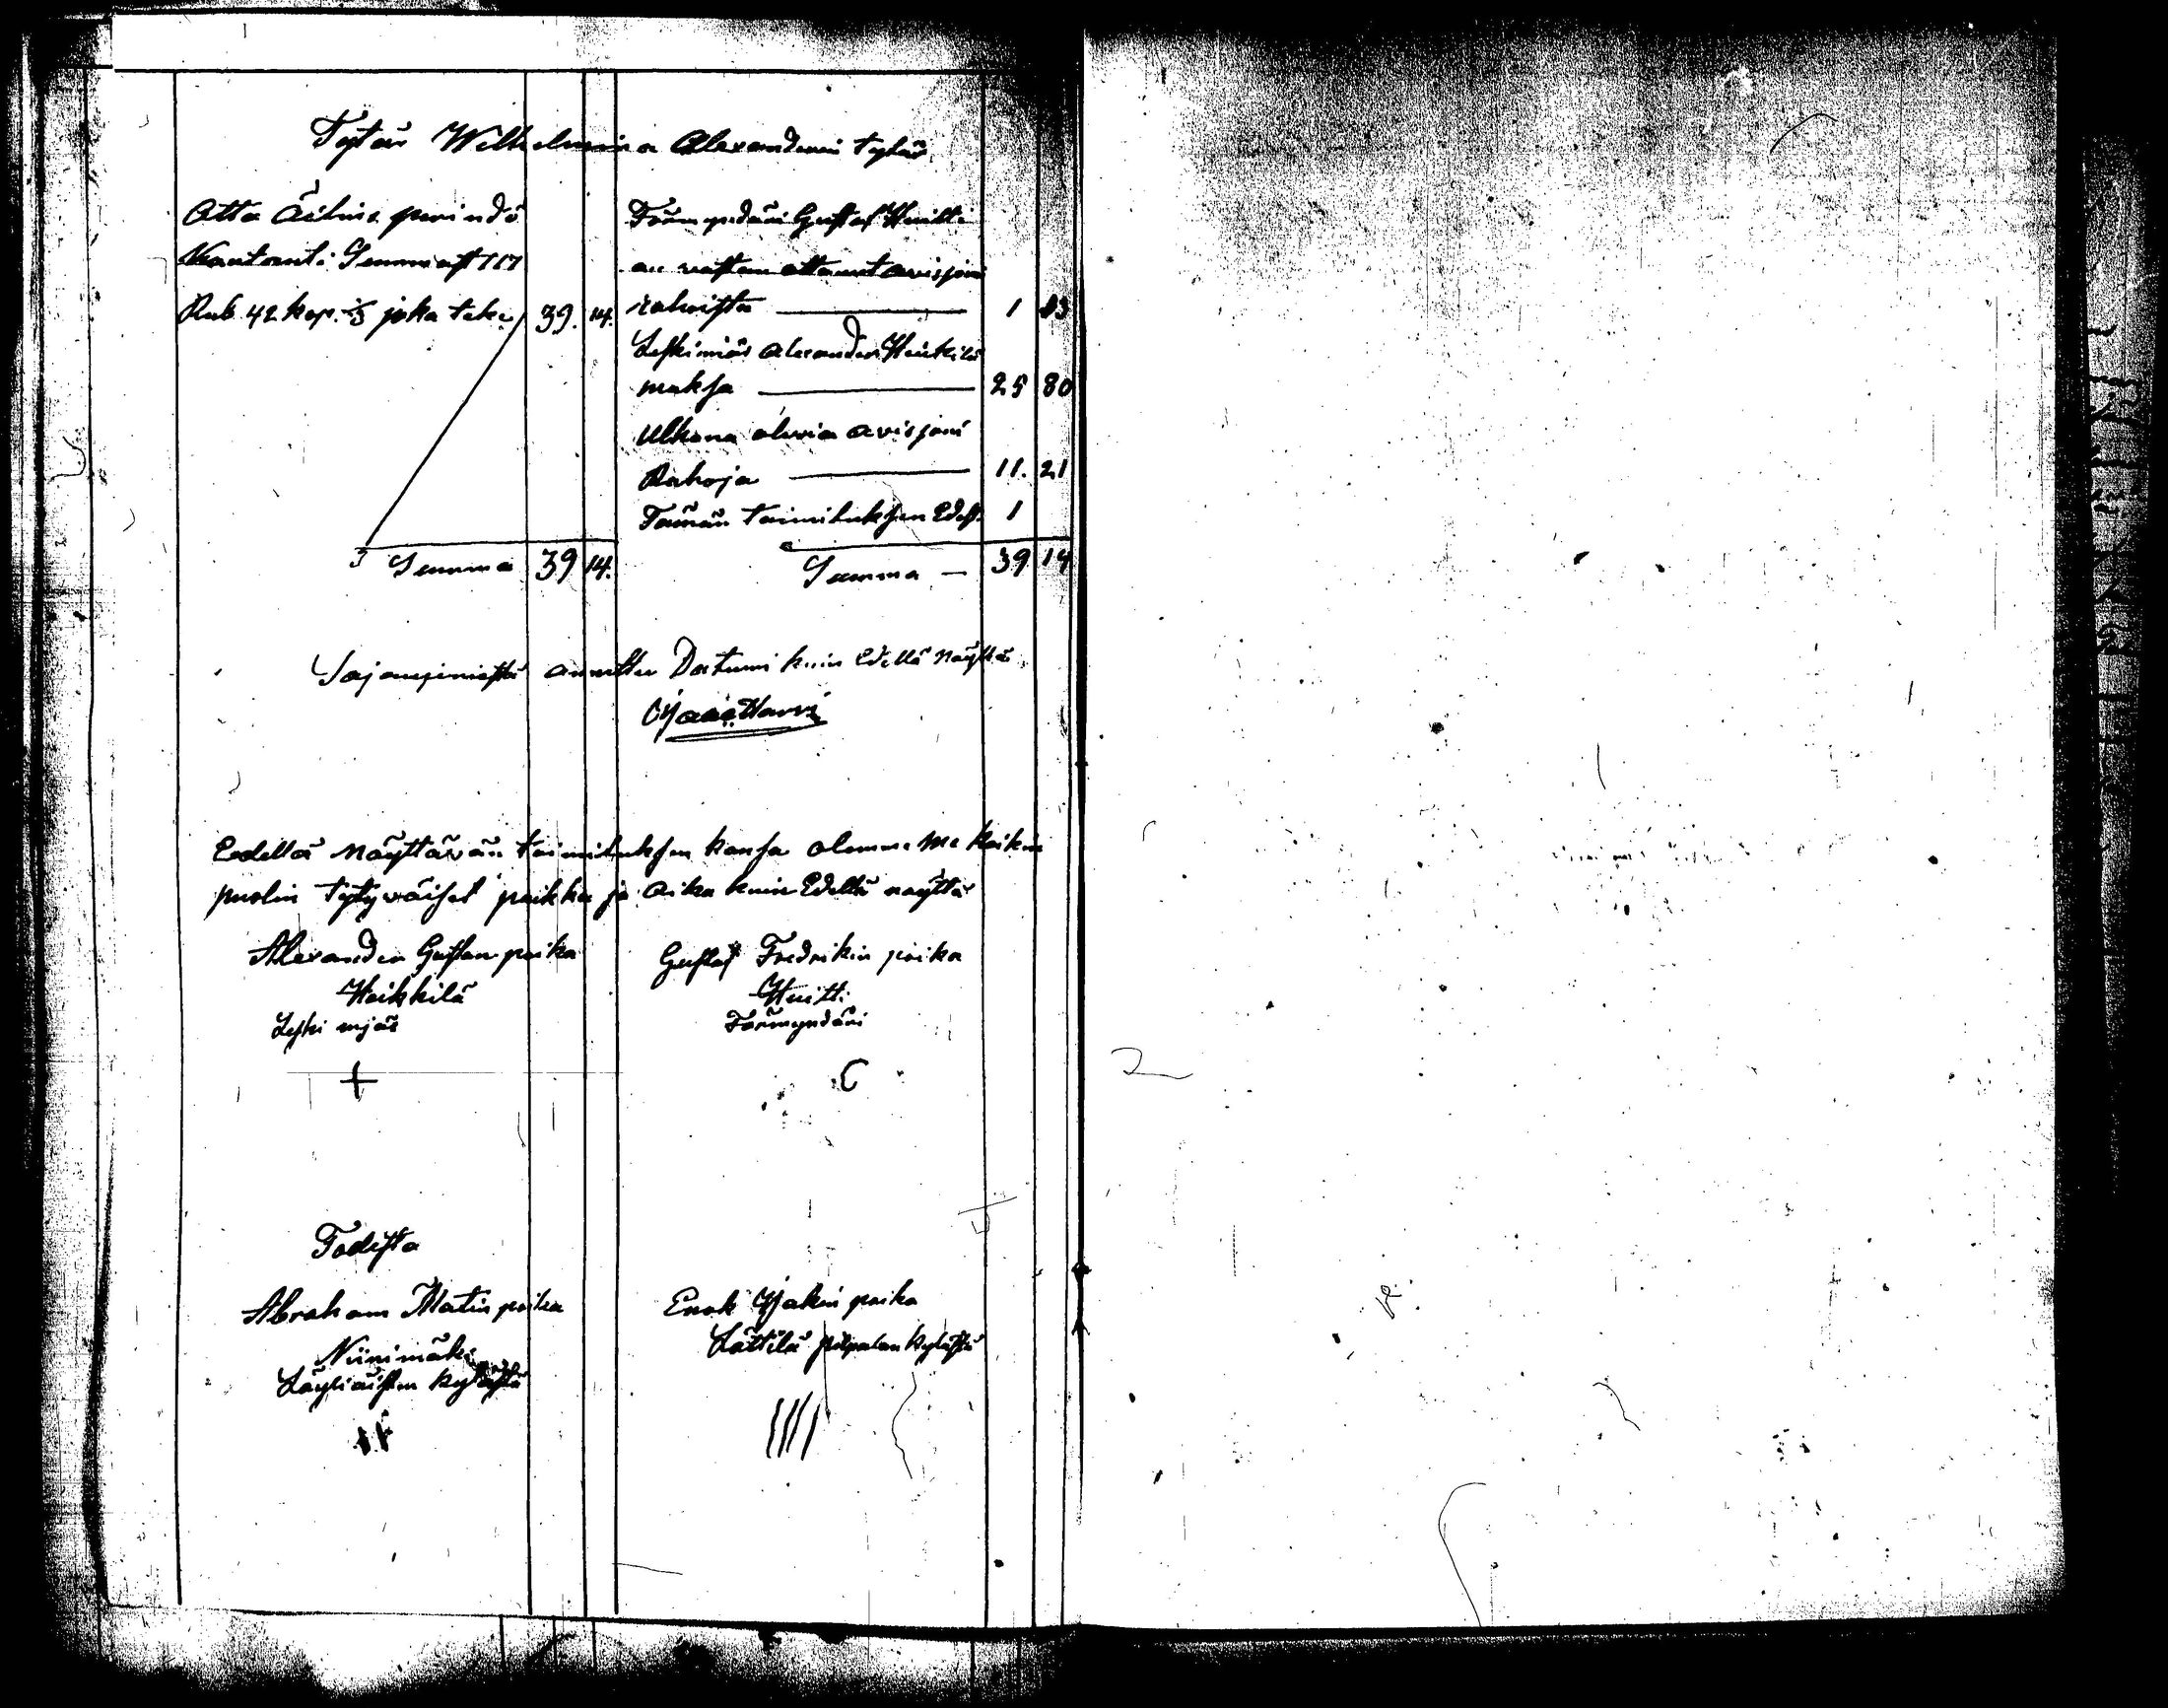 Tytär Wilhelmiina Alexanderin tytär
Otta Äitins perindö
Kuntonti Summast 117
Rub. 42 kop. ⅓ joka teke 39. 14.
Summa 39 14.
Förmyndäri Gustaf Huitti
on vastan ottanut avisjoni
rahoista 1 13
Leskimiäs Alexander Heikkilä
maksa 25 80
Ulkona olevia avisjoni
Rahoja 11. 21
Tämän toimituksen Edest 1
Summa 39 14
annettu Datumi kuin Edellä näyttä
Edellä näyttävän toimituksen kansa olemme me kaikin
puolin tytyväiset paikka ja aika kuin Edellä näyttä
Alexander Gustan poika
Heikkilä
Leski mjäs
Gustaf Fredrikin poika
Huitti
Förmyndäri
Todista
Abraham Matin poika
Niinimäki
Läyliäisten kylästä
Enok Isakin poika
Lättilä pilpalan kylästä